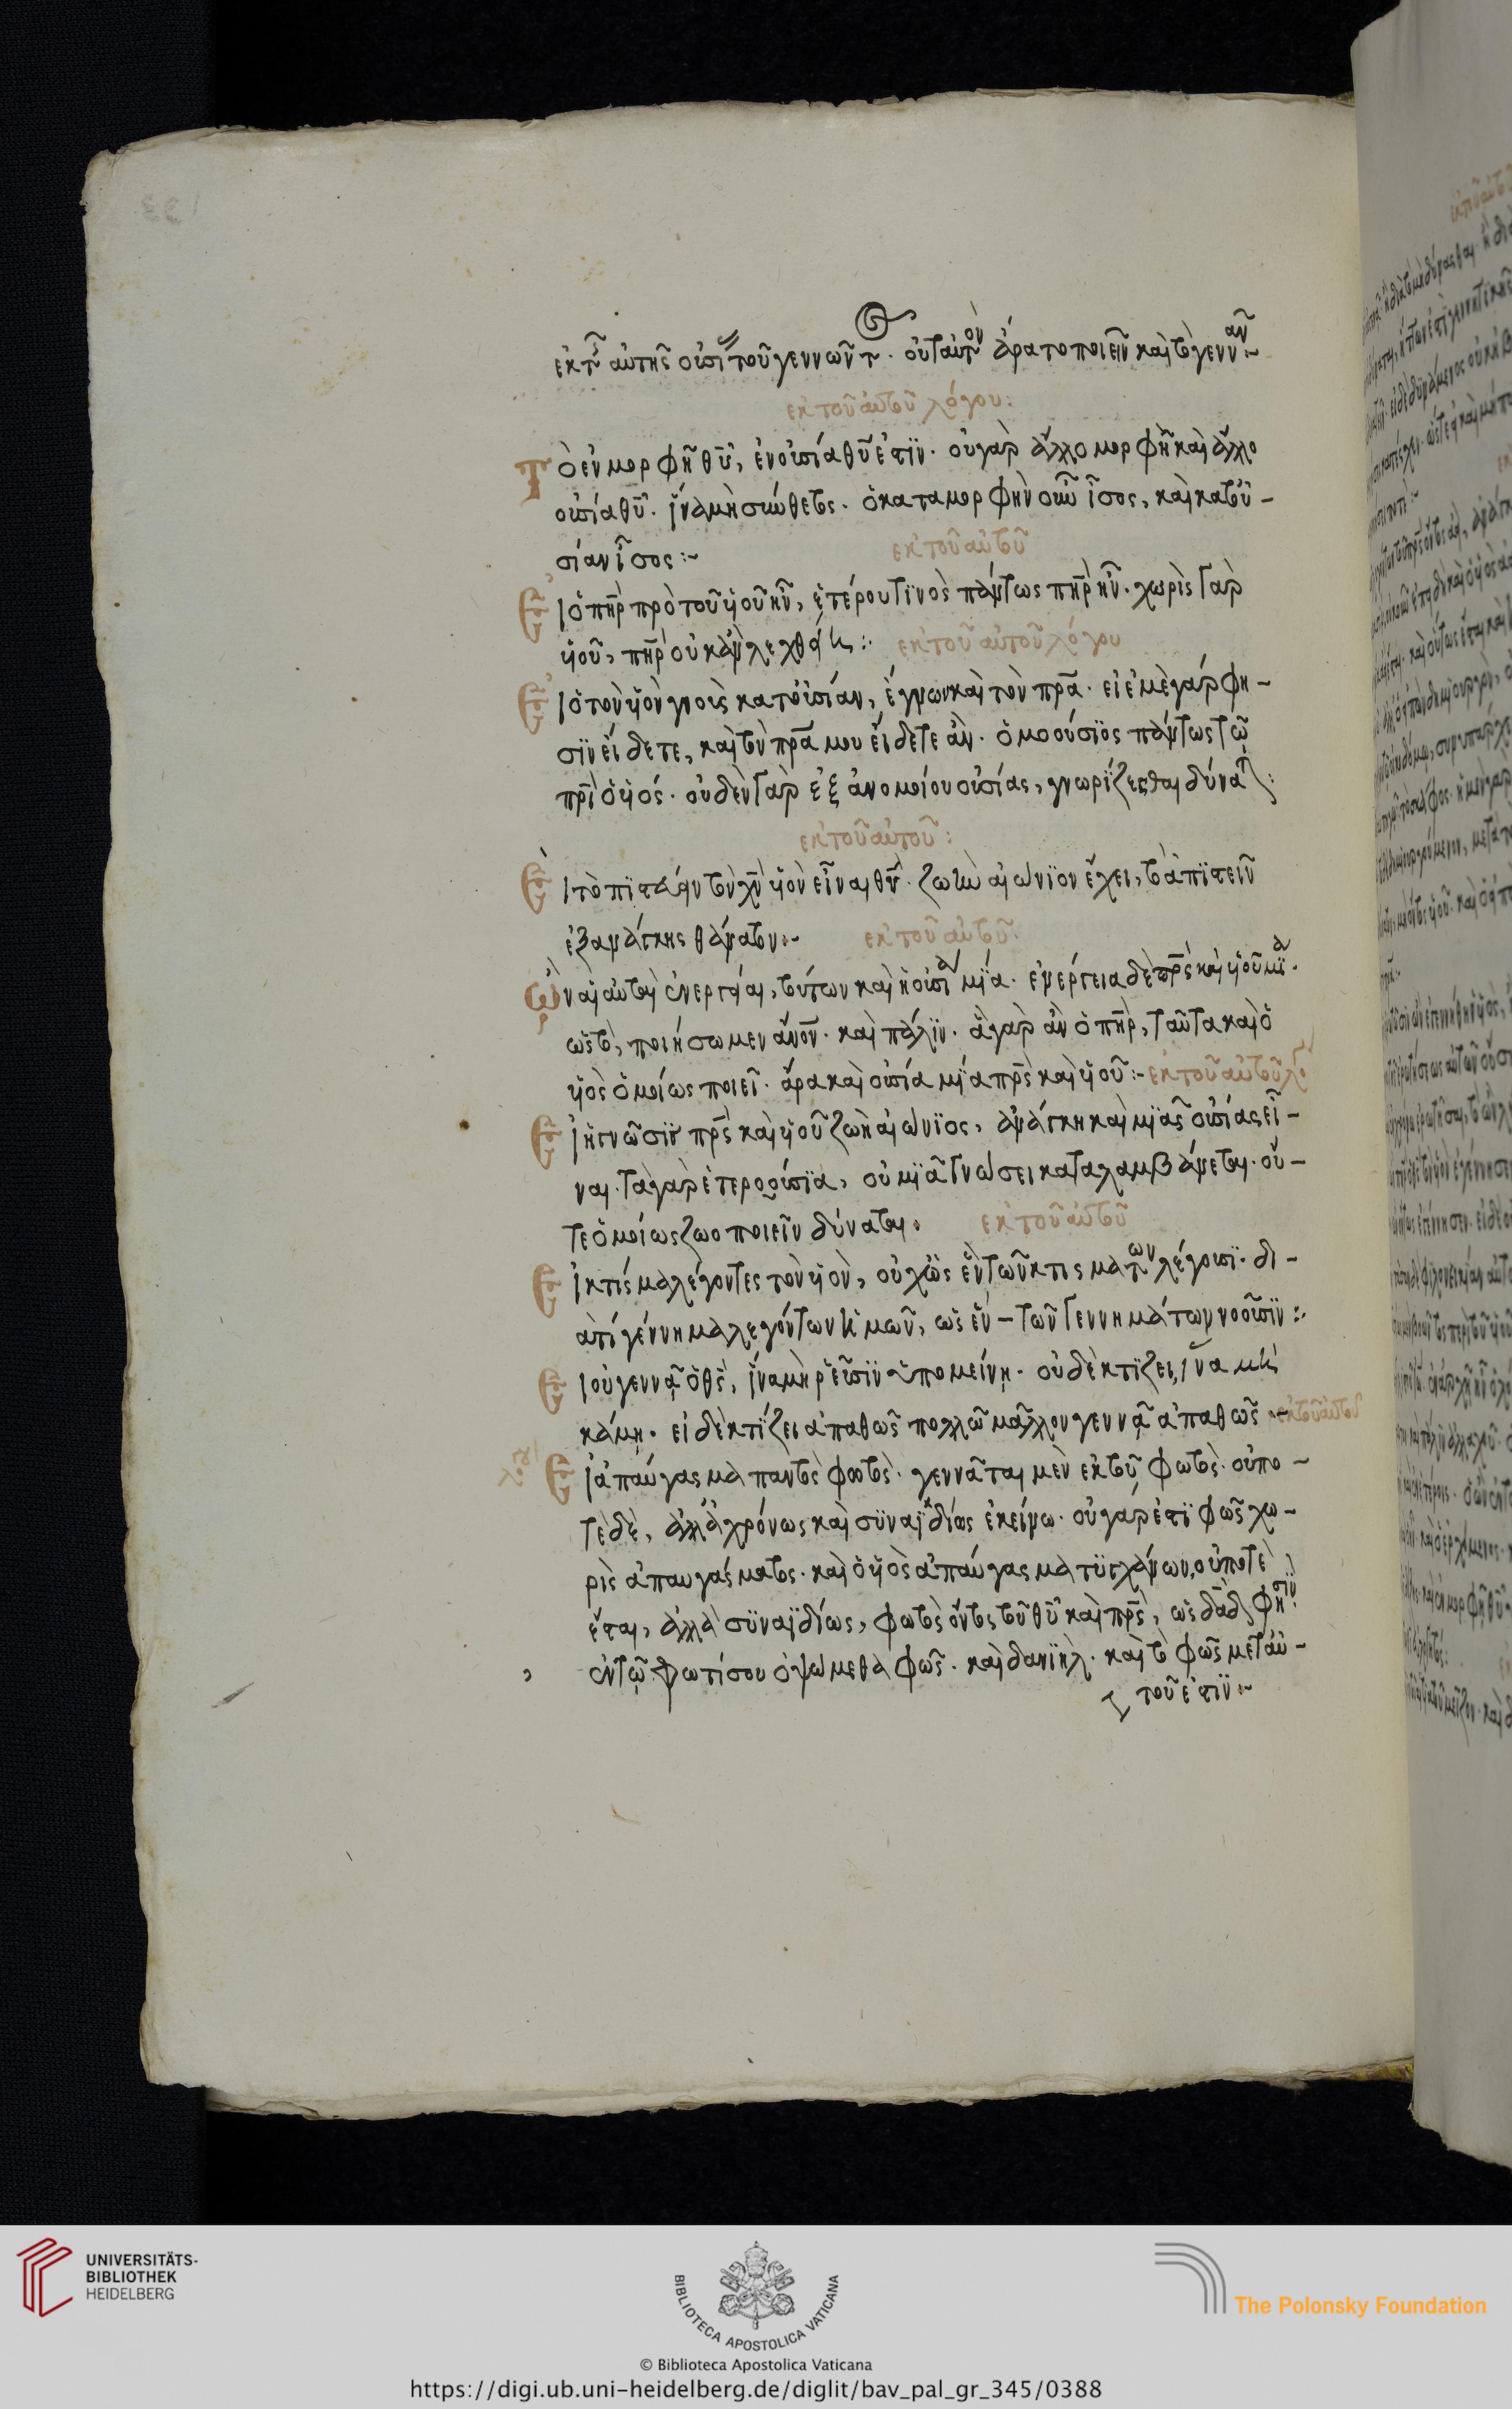 ἐκ τῆς αὐτῆς οὐσίας τοῦ γεννῶντος. οὐ ταὐτὸν ἄρα τὸ ποιεῖν καὶ τὸ γεννᾶν:~
ἐκ τοῦ αὐτοῦ λόγου:
Τὸ ἐν μορφῆ θῦ, ἐν οὐσία θῦ ἐστϊν. οὐ γὰρ ἄλλο μορφὴ καὶ ἄλλο
οὐσία θῦ. ἵνα μὴ σύνθετος. ὁ κατα μορφὴν οὖν ἴσος, καὶ κατ οὐ-
σίαν ἴσος:~ ἐκ τοῦ αὐτοῦ
Εἰ ὁ πηρ πρὸ τοῦ ϋἱοῦ ἦν, ἑτέρου τϊνὸς πάντως πηρ ἦν. χωρὶς γὰρ
ϋἱοῦ, πηρ οὐκ ἂν λεχθείη:~ ἐκ τοῦ αὐτοῦ λόγου
Εἰ ὁ τὸν ϋἱὸν γνοὺς κατ οὐσίαν, ἔγνων καὶ τὸν πρα. εἰ ἐμὲ γάρ φη-
σϊν εἴδετε, καὶ τὸν πρα μου εἴδετε ἂν. ὁμοούσϊος πάντως τῶ
πρι ὁ ϋἱός. οὐδὲν γὰρ ἐξ ἀνομοίου οὐσίας, γνωρίζεσθαι δύναται:
ἐκ τοῦ αὐτοῦ:
Εἰ τὸ πϊστεύειν τὸν χν ϋἱὸν εἶναι θῦ. ζωὴν αἰώνϊον ἔχει, τὸ ἀπϊστεῖν
ἐξ ἀνάγκης θάνατον:~ ἐκ τοῦ αὐτοῦ.
Ὧν αἱ αὐταὶ ἐνεργείαι, τούτων καὶ ἡ οὐσία μϊά. ἐνέργεια δὲ πρς καὶ ϋἱοῦ μϊα.
ὡς τό, ποιήσωμεν ἄνον. καὶ πάλϊν. ἃ γὰρ ἂν ὁ πηρ, ταῦτα καὶ ὁ
ϋἱὸς ὁμοίως ποιεῖ. ἄρα καὶ οὐσία μϊα πρς καὶ ϋἱοῦ:- ἐκ τοῦ αὐτοῦ λό
Εἰ ἡ γνῶσϊς πρς καὶ ϋἱοῦ ζωὴ αἰώνϊος, ἀνάγκη καὶ μϊᾶς οὐσίας εἶ-
ναι. τὰ γὰρ ἑτεροούσϊα, οὐ μϊᾶ γνώσει καταλαμβάνεται. οὔ-
τε ὁμοίως ζωοποιεῖν δύναται. ἐκ τοῦ αὐτοῦ
Εἰ κτίσμα λέγοντες τὸν ϋἱὸν, οὐχ ὡς ἓν τῶν κτισμάτων λέγουσϊ. δι-
ατί γέννημα λεγόντων ἡμῶν, ὡς ἓν - τῶν γεννημάτων νοοῦσϊν:.
Εἰ οὐ γεννᾶ ὁ θς, ἵνα μὴ ῥεῦσϊν ὑπομείνη. οὐδὲ κτϊζει, ἵνα μὴ
κάμη. εἰ δὲ κτϊζει ἀπαθῶς πολλῶ μᾶλλον γεννᾶ ἀπαθῶς:~ ἐκ τοῦ αὐτοῦ
λόγου
Εἰ ἀπαύγασμα παντὸς φωτὸς. γεννᾶται μὲν ἐκ τοῦ φωτὸς. οὔπο-
τὲ δὲ, ἀλλ ἀχρόνως καὶ σϋναϊδίως ἐκείνω. οὐ γάρ ἐστϊ φῶς χω-
ρὶς ἀπαυγάσματος. καὶ ὁ ϋἱὸς ἀπαύγασμα τϋγχάνων, οὔποτὲ
ἔσται, ἀλλὰ σϋναϊδίως, φωτὸς ὄντος τοῦ θῦ καὶ πρς, ὡς δαδ φησϊν.
ἐν τῶ φωτί σου ὀψώμεθα φῶς. καὶ δανϊὴλ. καὶ τὸ φῶς μετ αὐ-
τοῦ ἐστϊν:~
UNIVERSITÄTS-
BIBLIOTHEK
HEIDELBERG
BIBLIOTECA APOSTOLICA VATICANA
The Polonsky Foundation
© Biblioteca Apostolica Vaticana
https://digi.ub.uni-heidelberg.de/diglit/bav_pal_gr_345/0388